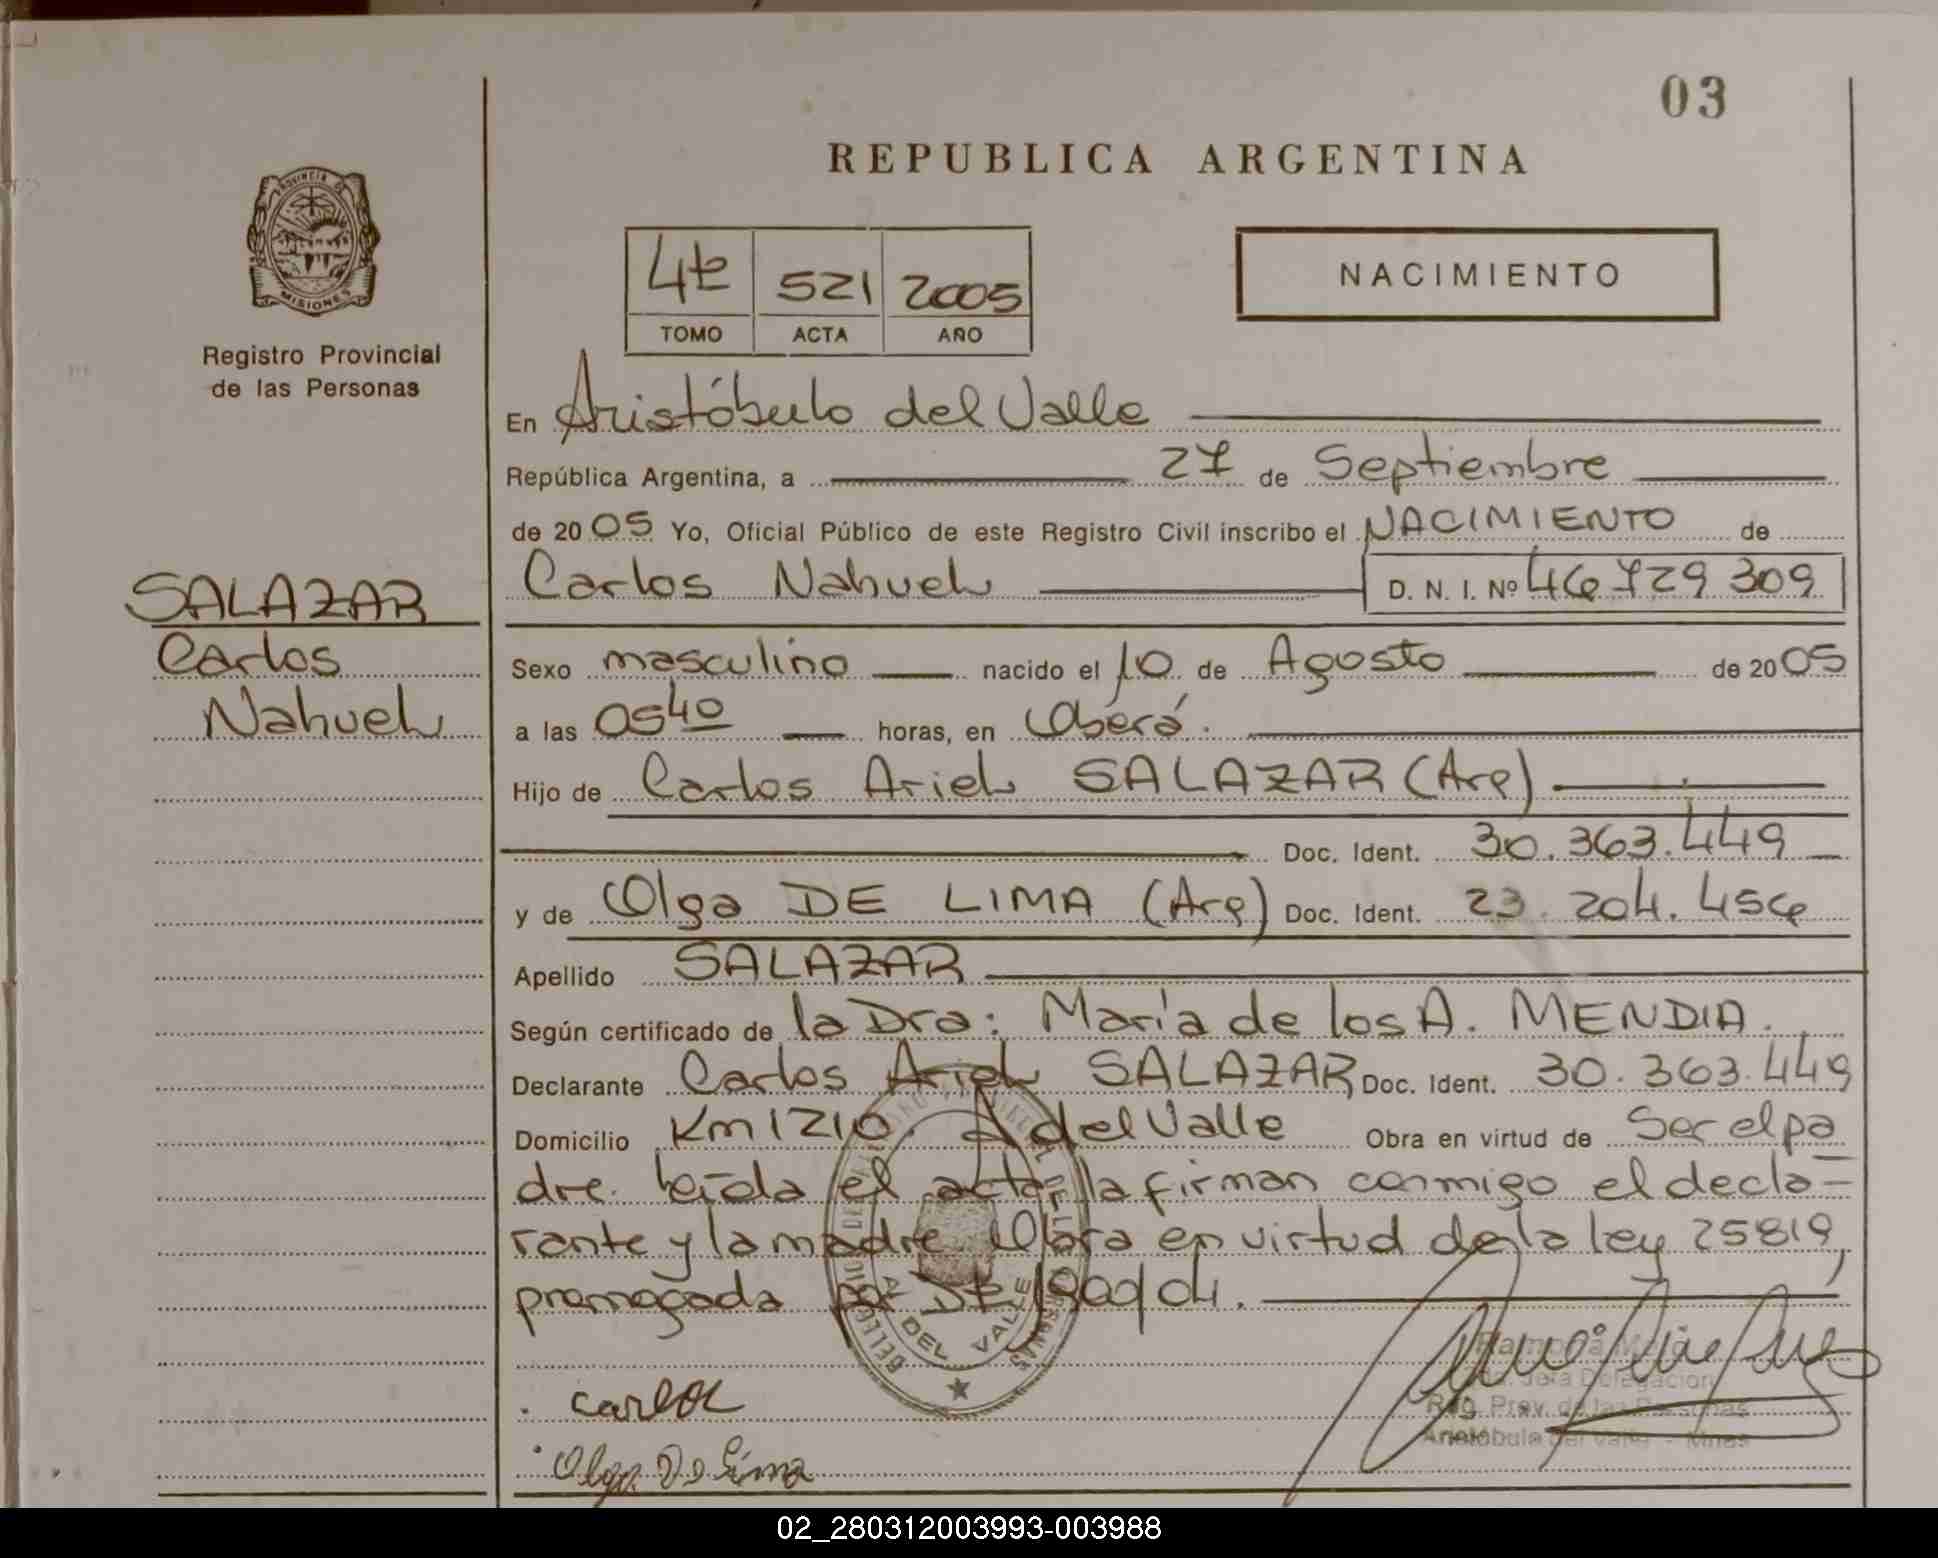 03
REPUBLICA ARGENTINA
PROVINCIA D
MISIONES
Registro Provincial
de las Personas
4t 521 2005
TOMO ACTA AÑO
NACIMIENTO
En Aristóbulo del Valle
República Argentina, a 27 de Septiembre
de 2005 Yo, Oficial Público de este Registro Civil inscribo el NACIMIENTO de
Carlos Nahuel D. N. I. Nº 46 729 309
SALAZAR
Carlos
Nahuel
Sexo masculino nacido el 10 de Agosto de 2005
a las 0540 horas, en Oberá.
Hijo de Carlos Ariel SALAZAR (Arg)
Doc. Ident. 30.363.449
y de Olga DE LIMA (Arg) Doc. Ident. 23.204.456
Apellido SALAZAR
Según certificado de la Dra: María de los A. MENDIA.
Declarante Carlos Ariel SALAZAR Doc. Ident. 30.363.449
Domicilio Km 1210. A del Valle Obra en virtud de Ser el pa
dre. leída el acta la firman conmigo el decla-
rante y la madre. Obra en virtud de la ley 25819,
promogada por 1909/04.
DEL VALLE
Carlos
Olga De Lima
Jefa Delegación
Reg. Prov. de las Personas
Aristóbulo del Valle - Mnes
02_280312003993-003988